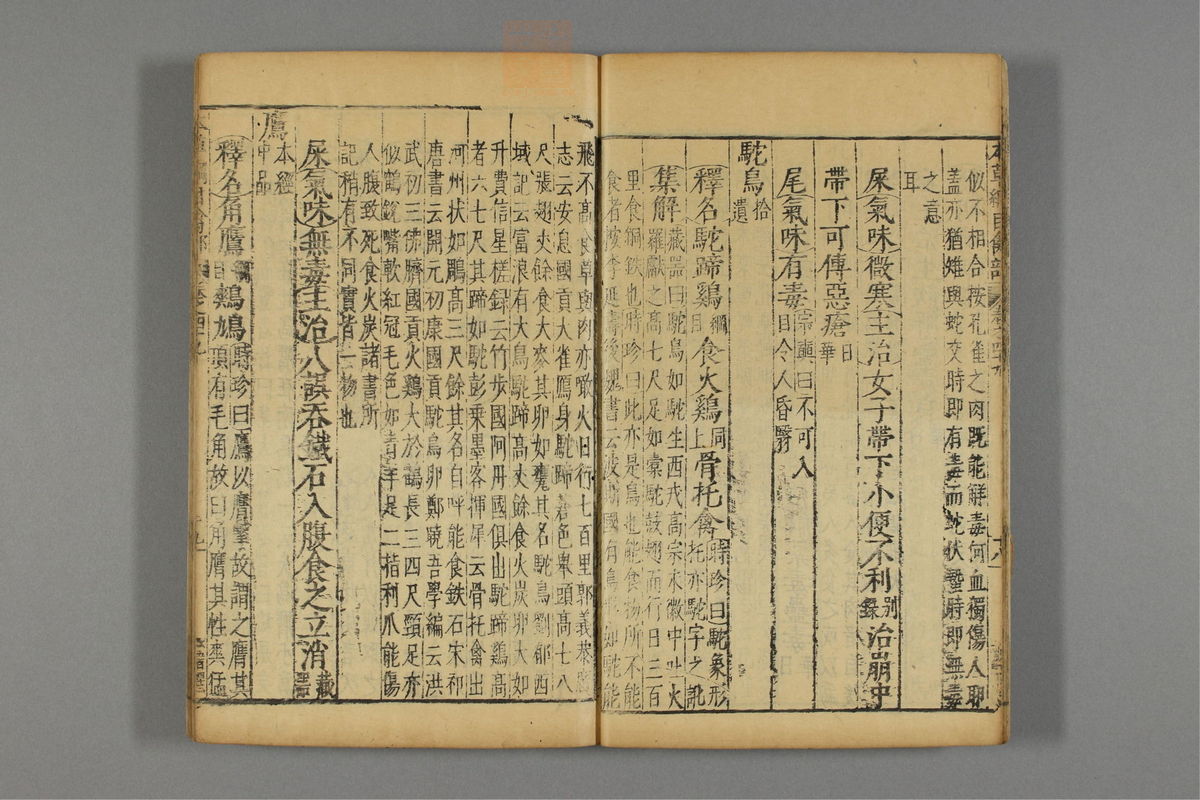 似不相合按孔雀之肉既能解毒何血獨傷人耶
蓋亦猶雉與蛇交時即有毒而蛇伏蟄時即無毒
之意
耳
屎氣味微寒主治女子帶下小便不利別錄治崩中
帶下可傳惡瘡日華
尾氣味有毒宗奭曰不可入目令人昏翳
駝鳥拾遺
釋名駝蹄雞綱目食火雞同上骨托禽時珍曰駝象形托亦駝字之訛
集解藏器曰駝鳥如駝生西戎高宗永徽中吐火
羅獻之高七尺足如橐駝鼓翅而行日三百
里食銅鉄也時珍曰此亦是鳥也能食物所不能
食者按李延壽後魏書云波斯國有鳥形如駝能
飛不高食草與肉亦噉火日行七百里郭義恭廣
志云安息國貢大雀鴈身駝蹄蒼色舉頭高七八
尺張翅丈餘食大麥其卵如甕其名駝鳥劉郁西
域記云富浪有大鳥駝蹄高丈餘食火炭卵大如
升費信星槎録云竹步國阿丹國俱出駝蹄鷄高
者六七尺其蹄如駝彭乗墨客揮犀云骨托禽出
河州狀如鵰高三尺餘其名自呼能食鉄石宋祁
唐書云開元初康國貢駝鳥卵鄭曉吾學編云洪
武初三佛臍國貢火鷄大於鶴長三四尺頸足亦
似鶴銳嘴軟紅冠毛色如青羊足二指利爪能傷
人腹致死食火炭諸書所
記稍有不同實皆一物也
屎氣味無毒主治人誤吞鐵石入腹食之立消藏器
鷹本經中品
釋名角鷹綱目鷞鳩時珍曰鷹以膺擊故謂之鷹其
頂有毛角故曰角鷹其性爽猛